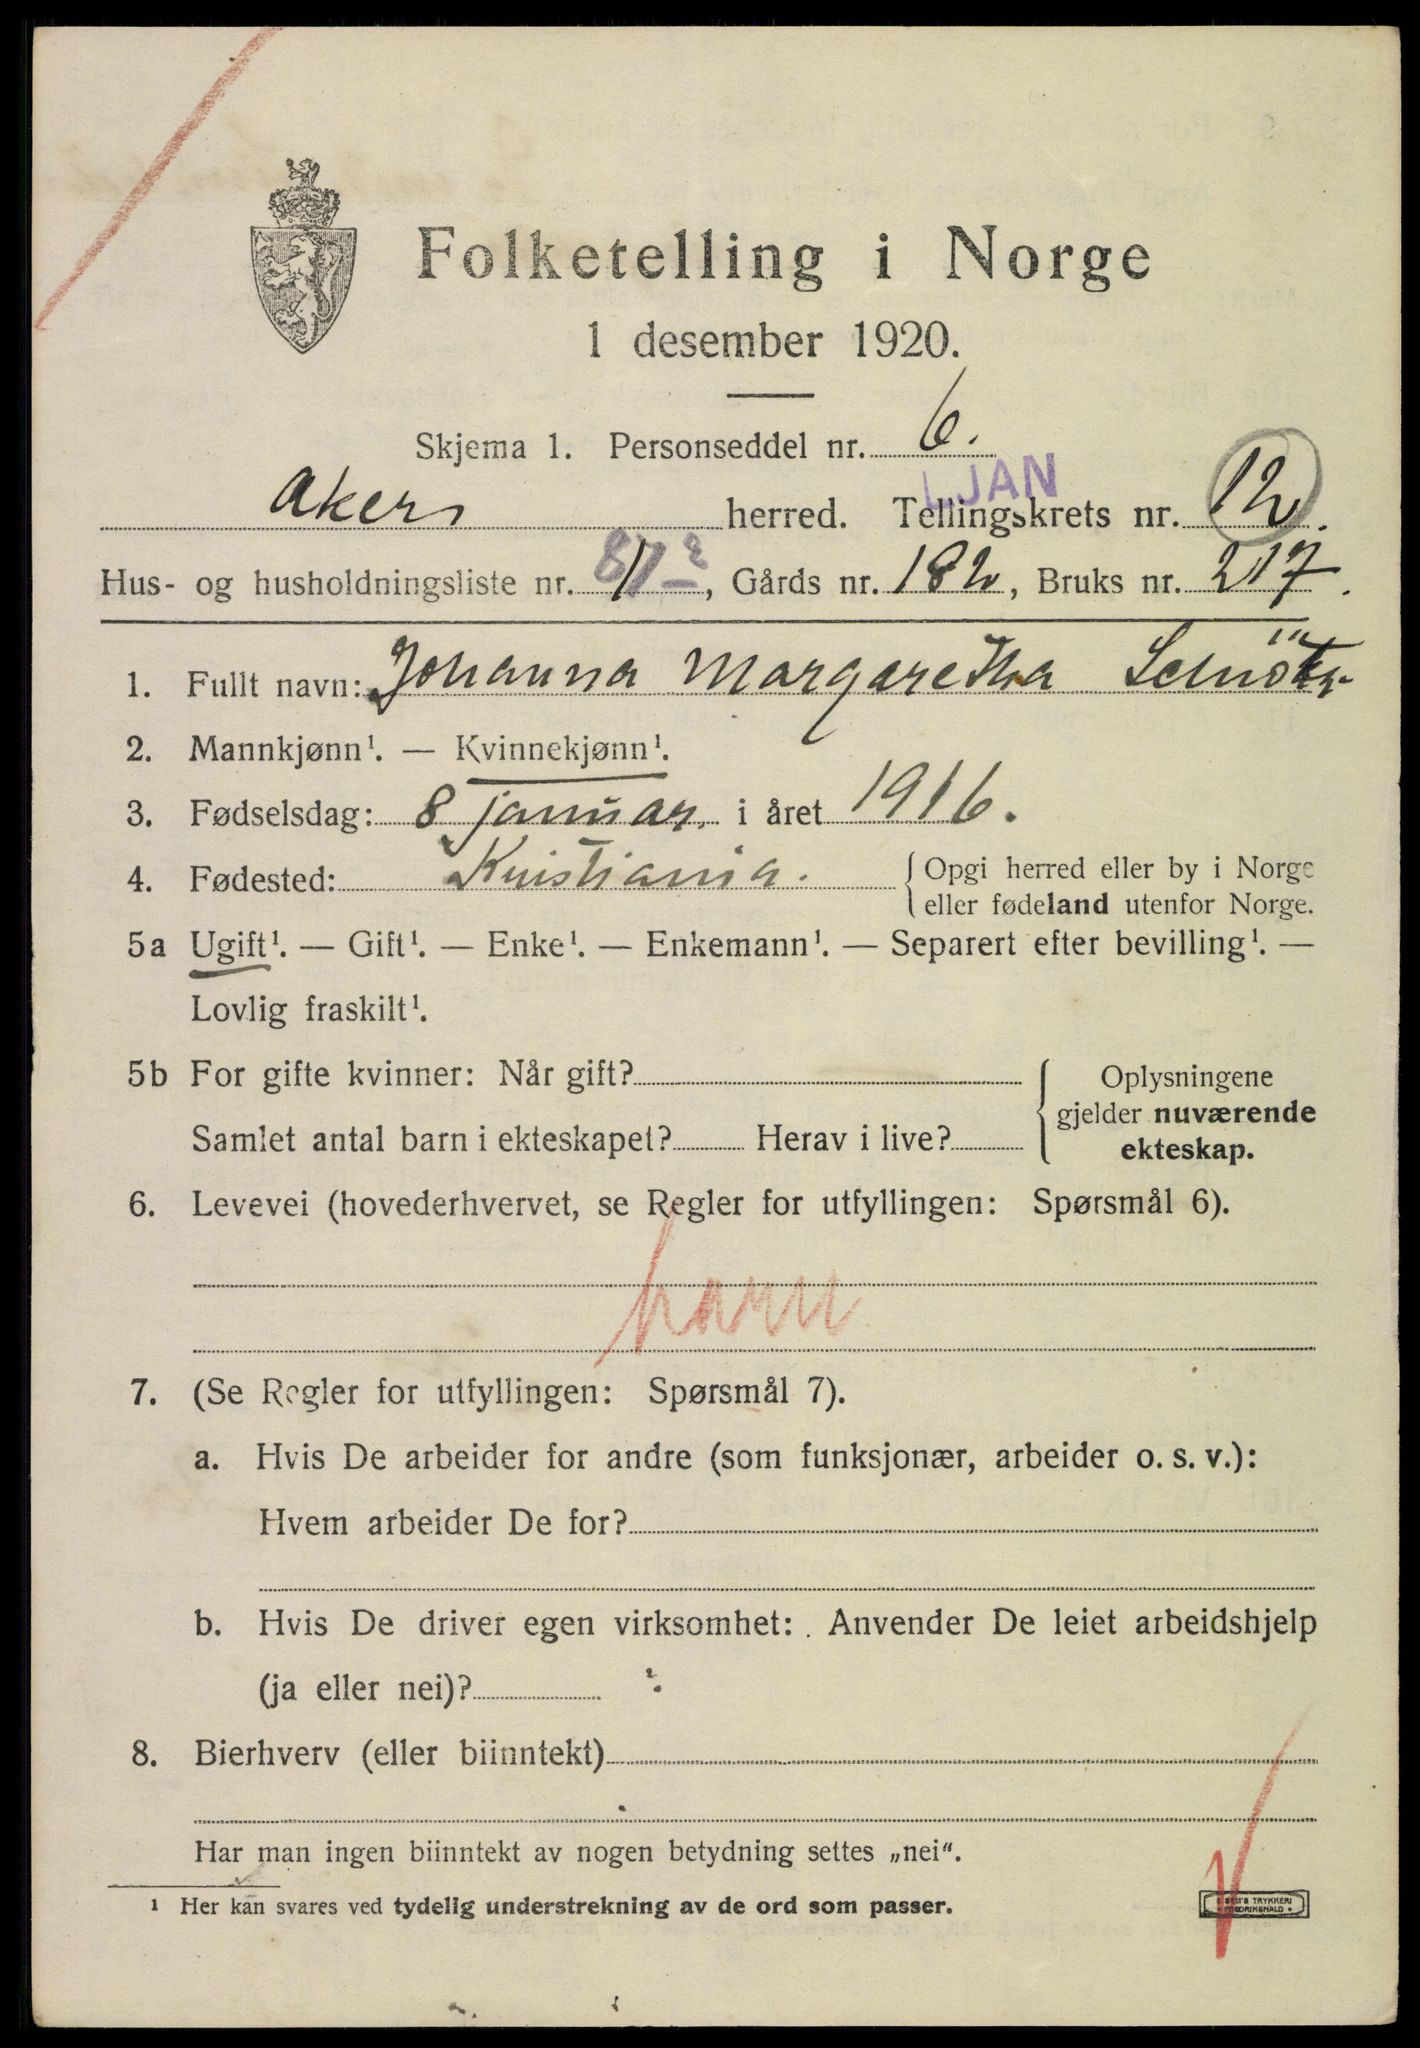 Folketelling i Norge
1 desember 1920.
Skjema 1. Personseddel nr. 6.
LJAN
Akers herred. Tellingskrets nr. 12.
Hus- og husholdningsliste nr. 87, Gårds nr. 182, Bruks nr. 217.
1. Fullt navn: Johanna Margaretha
2. Mannkjønn¹. — Kvinnekjønn¹.
3. Fødselsdag: 8 januar. i året 1916.
4. Fødested: Kristiania. Opgi herred eller by i Norge
eller fødeland utenfor Norge.
5a Ugift¹. — Gift¹. — Enke¹. — Enkemann¹. — Separert efter bevilling¹. —
Lovlig fraskilt¹.
5b For gifte kvinner: Når gift? Oplysningene
gjelder nuværende
Samlet antal barn i ekteskapet? Herav i live? ekteskap.
6. Levevei (hovederhvervet, se Regler for utfyllingen: Spørsmål 6).
barn
7. (Se Regler for utfyllingen: Spørsmål 7).
a. Hvis De arbeider for andre (som funksjonær, arbeider o. s. v.):
Hvem arbeider De for?
b. Hvis De driver egen virksomhet: Anvender De leiet arbeidshjelp
(ja eller nei)?
8. Bierhverv (eller biinntekt)
Har man ingen biinntekt av nogen betydning settes „nei“.
¹ Her kan svares ved tydelig understrekning av de ord som passer.
TRYKKERI
FREDRIKSHALD